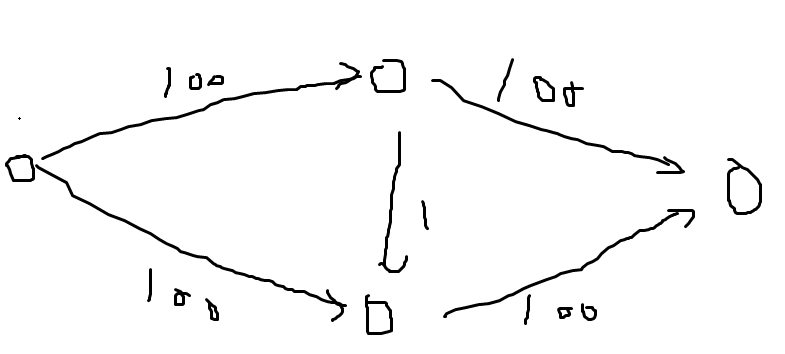 100
100
1
100
100